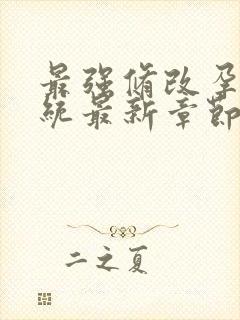 最强修改孕
统最新章节
二之夏